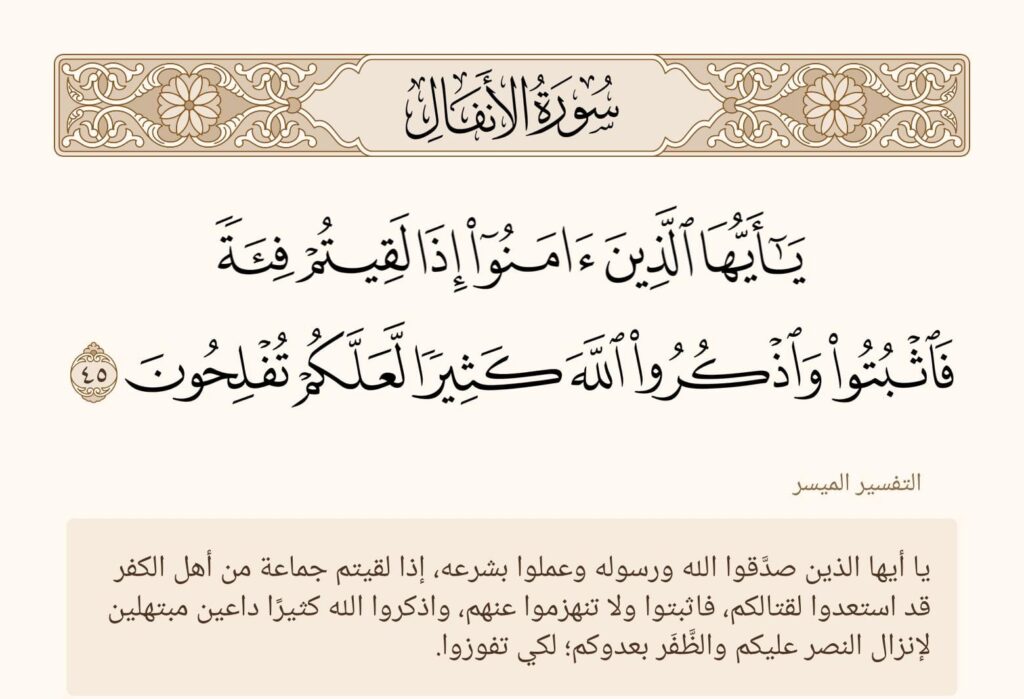 سُورَةُ الأَنفَالِ
يَٰٓأَيُّهَا ٱلَّذِينَ ءَامَنُوٓا۟ إِذَا لَقِيتُمْ فِئَةً
فَٱثْبُتُوا۟ وَٱذْكُرُوا۟ ٱللَّهَ كَثِيرًا لَّعَلَّكُمْ تُفْلِحُونَ ٤٥
التفسير الميسر
يا أيها الذين صدَّقوا الله ورسوله وعملوا بشرعه، إذا لقيتم جماعة من أهل الكفر
قد استعدوا لقتالكم، فاثبتوا ولا تنهزموا عنهم، واذكروا الله كثيرًا داعين مبتهلين
لإنزال النصر عليكم والظَّفَر بعدوكم؛ لكي تفوزوا.